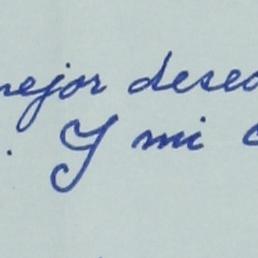 mejor dese
. Y mi